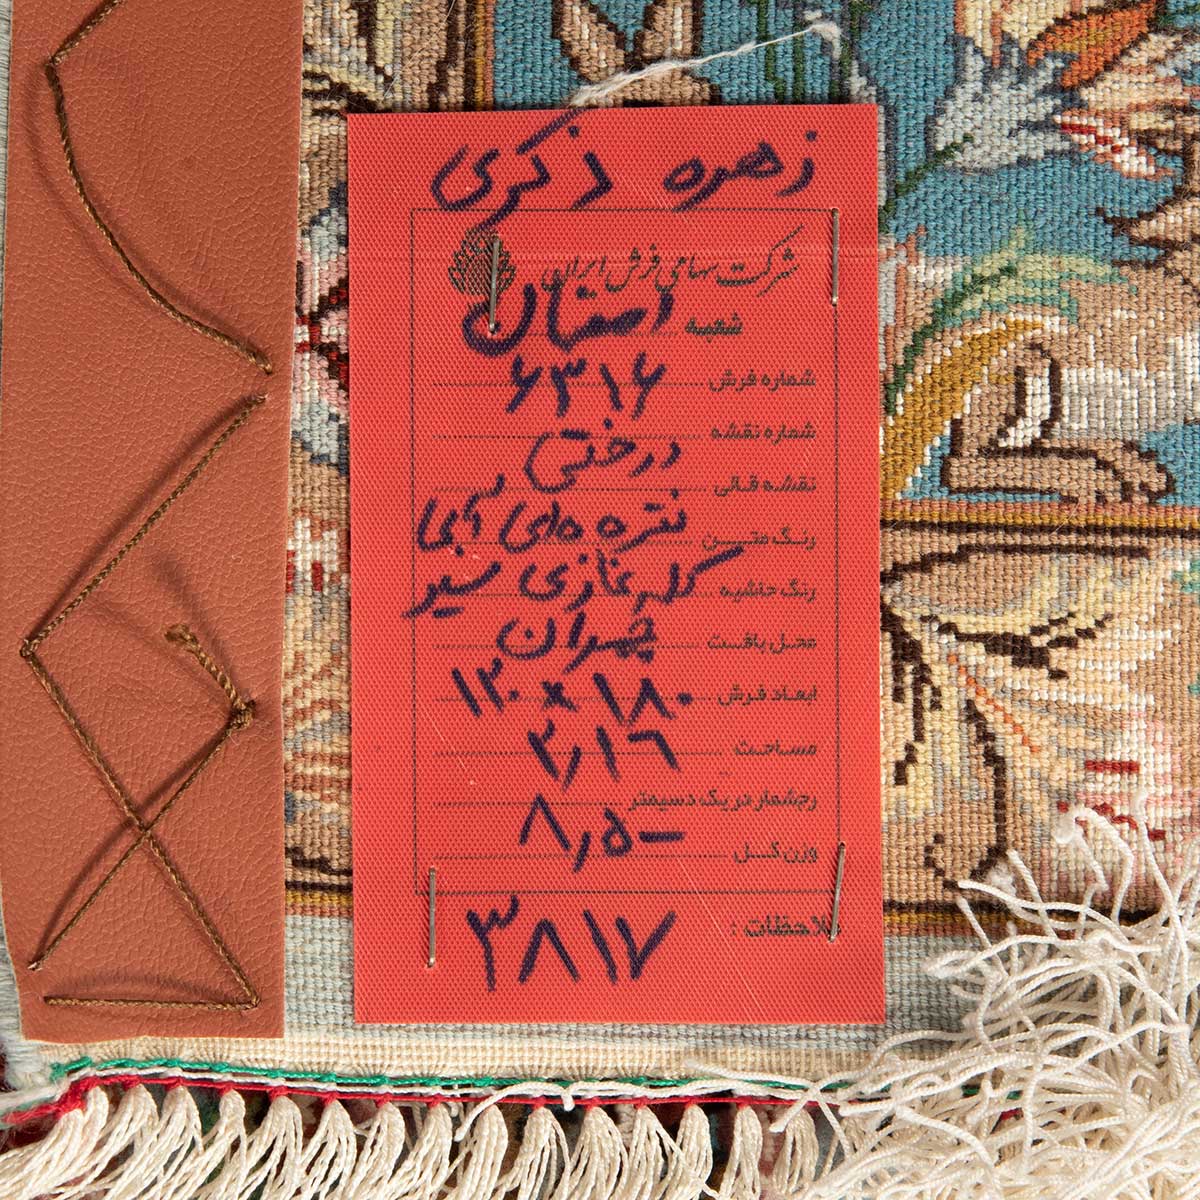 زهره ذکری
شرکت سهامی فرش ایران
شعبه اصفهان
شماره فرش ۶۳۱۶
شماره نقشه
نقشه قالی درختی
رنگ متن نقره‌ای آبی
رنگ حاشیه سیر
محل بافت چمران
ابعاد فرش ۱۲۰×۱۸۰
مساحت ۲٫۱۶
رجشمار در یک دسیمتر
وزن کل ۸٫۵۰
ملاحظات : ۳۸۱۷